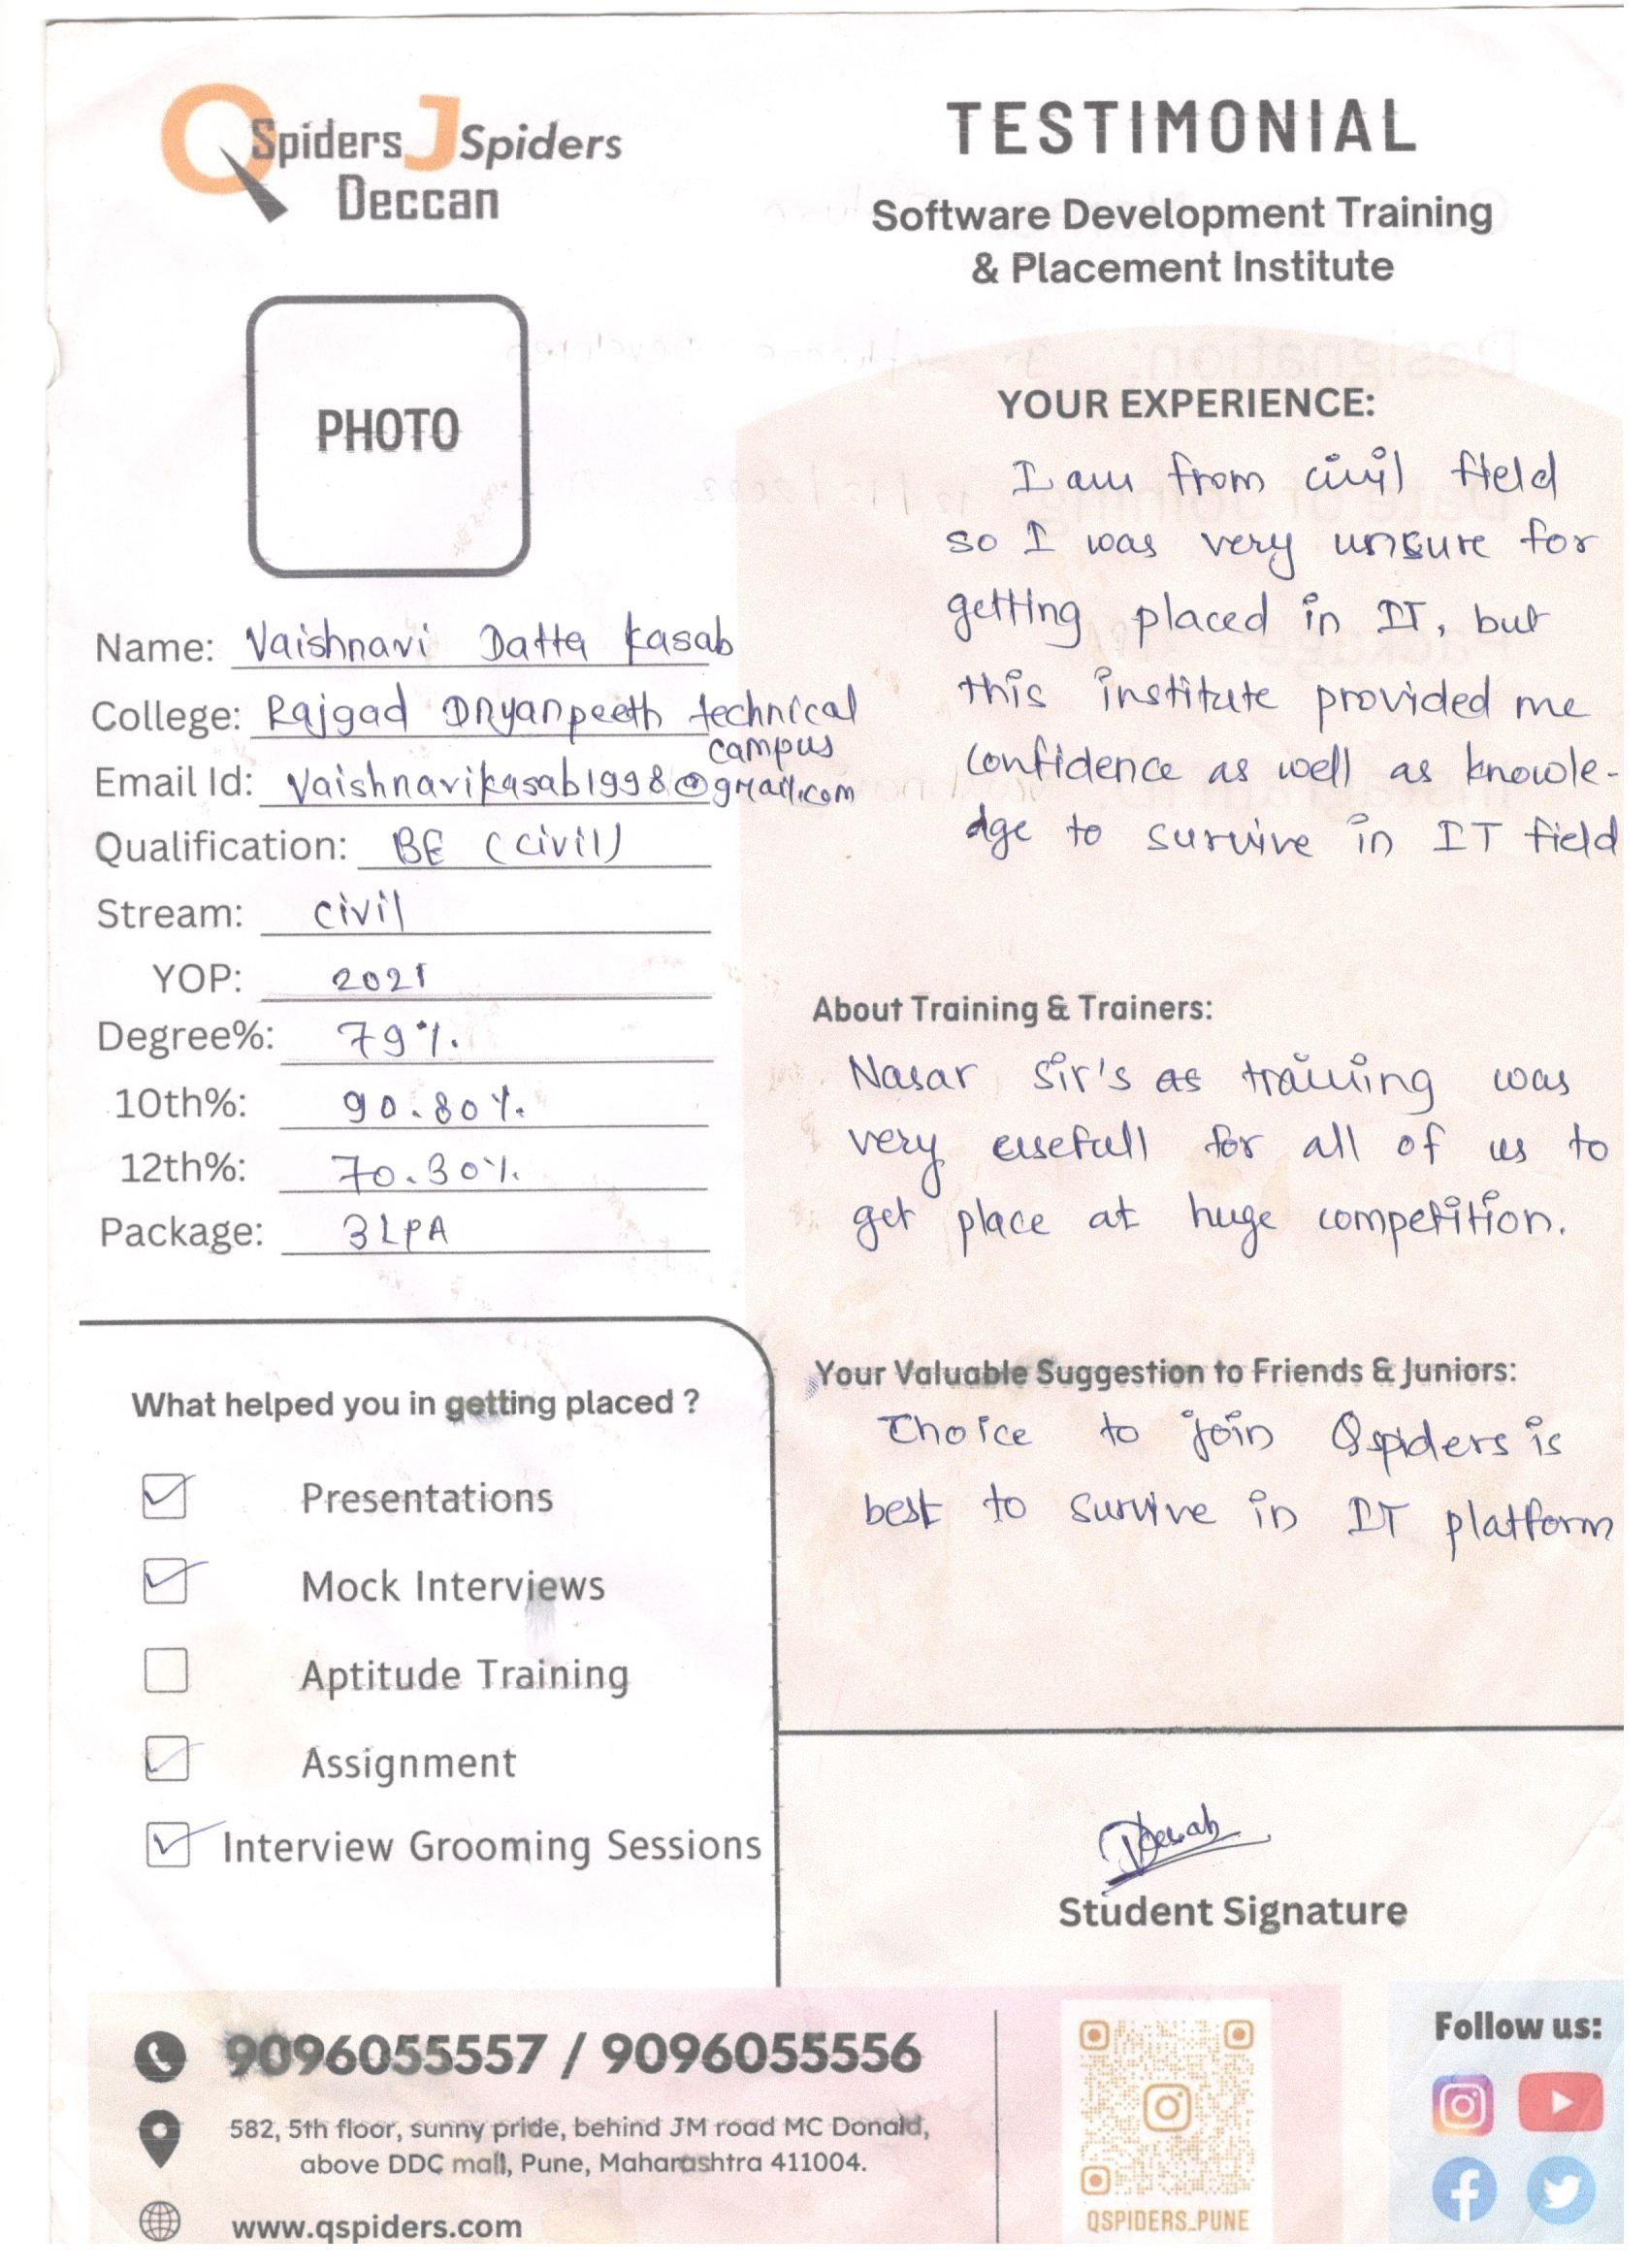 QSpiders JSpiders
Deccan
TESTIMONIAL
Software Development Training
& Placement Institute
PHOTO
Name: Vaishnavi Datta Kasab
College: Rajgad Dnyanpeeth technical
campus
Email Id: Vaishnavikasab1998@gmail.com
Qualification: BE (civil)
Stream: civil
YOP: 2021
Degree%: 79%.
10th%: 90.80%.
12th%: 70.30%.
Package: 3LPA
YOUR EXPERIENCE:
I am from civil field
so I was very unsure for
getting placed in IT, but
this institute provided me
confidence as well as knowle-
dge to survive in IT field
About Training & Trainers:
Nasar Sir's as training was
very usefull for all of us to
get place at huge competition.
Your Valuable Suggestion to Friends & Juniors:
Choice to join Qspiders is
best to survive in IT platform
What helped you in getting placed ?
Presentations
Mock Interviews
Aptitude Training
Assignment
Interview Grooming Sessions
Student Signature
9096055557 / 9096055556
582, 5th floor, sunny pride, behind JM road MC Donald,
above DDC mall, Pune, Maharashtra 411004.
www.qspiders.com
QSPIDERS_PUNE
Follow us: